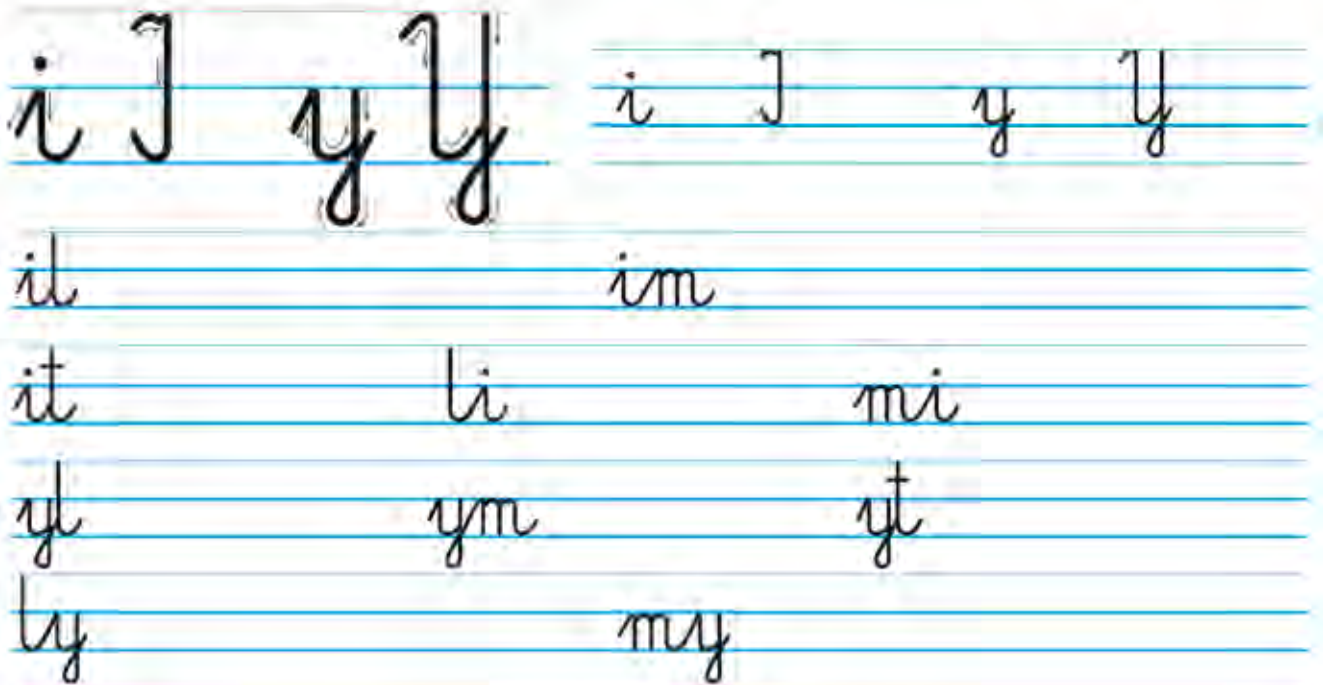 i I y Y i I y Y
il im
it li mi
yl ym yt
ly my